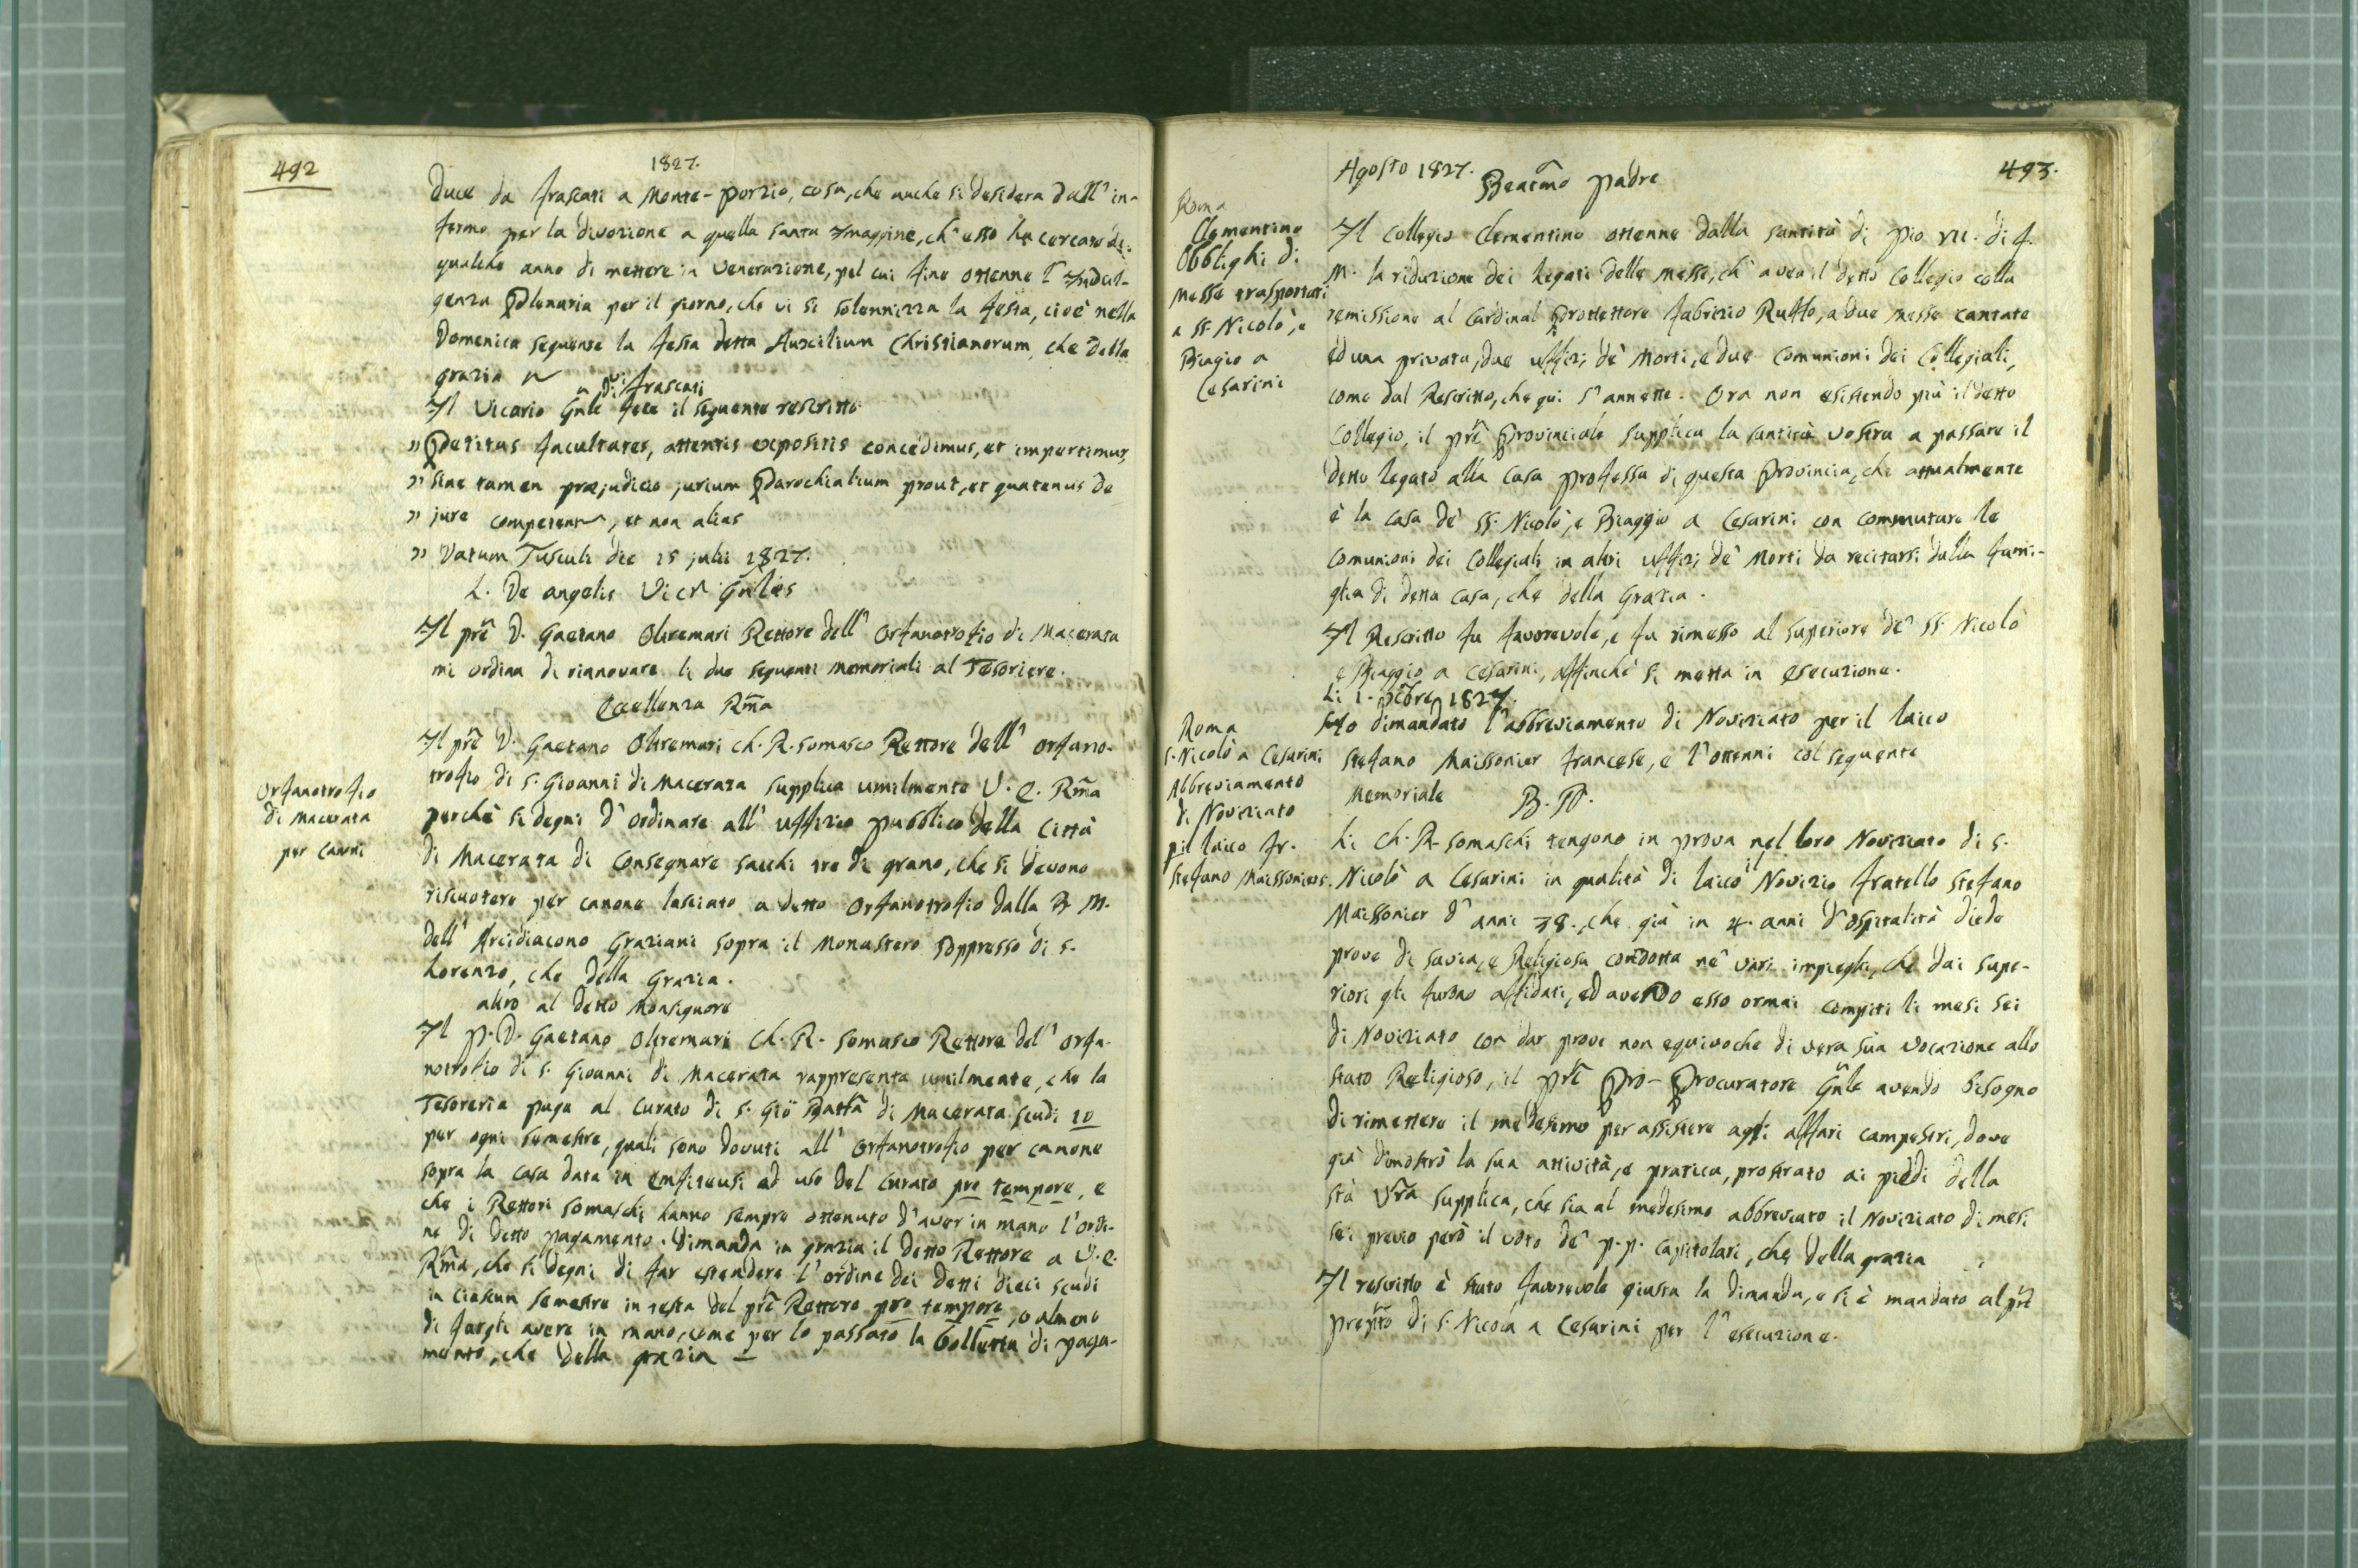 492
1827.
duce da frascati a Monte-Porzio, cosa, che anche si desidera dall' in-
fermo per la divozione a quella santa Immagine, ch' esso ha cercato da
qualche anno di mettere in venerazione, pel cui fine ottenne l' Indul-
genza Plenaria per il giorno, che vi si solennizza la festa, cioè nella
Domenica seguente la festa detta Auxilium Christianorum, che della
grazia
di frascati
Il Vicario Gnle fece il seguente rescritto
" Petitas facultates, attentis expositis concedimus, et impertimur,
" sine tamen præjudicio jurium Parochialium prout, et quatenus de
" jure competent, et non alias
" Datum Tusculi die 15 julii 1827.
L. De angelis Vics Gnles
Il prē D. Gaetano Oltremari Rettore dell' Orfanotrofio di Macerata
mi ordina di rinnovare li due seguenti memoriali al Tesoriere.
Eccellenza Rma
Il prē D. Gaetano Oltremari Ch. R. Somasco Rettore dell' orfano-
trofio di S. Gioanni di Macerata supplica umilmente V. E. Rma
Orfanotrofio
di Macerata
per canoni
perchè si degni d' ordinare all' uffizio pubblico della Città
di Macerata di consegnare sacchi tre di grano, che si devono
riscuotere per canone lasciato a detto Orfanotrofio dalla B. M.
dell' Arcidiacono Graziani sopra il Monastero soppresso di S.
Lorenzo, che della Grazia.
altro al detto Monsignore
Il P. D. Gaetano Oltremari Ch. R. Somasco Rettore del' orfa-
notrofio di S. Gioanni di Macerata rappresenta umilmente, che la
Tesoreria paga al Curato di S. Gio Batta di Macerata scudi 10
per ogni semestre, quali sono dovuti all' Orfanotrofio per canone
sopra la casa data in enfiteusi ad uso del Curato pro tempore, e
che i Rettori Somaschi hanno sempre ottenuto d' aver in mano l'ordi-
ne di detto pagamento. Dimanda in grazia il detto Rettore a V. E.
Rma, che si degni di far estendere l' ordine dei detti dieci scudi
in ciascun semestre in testa del prē Rettore pro tempore, o almeno
di fargli avere in mano, come per lo passato la bolletta di paga-
mento, che della grazia
Agosto 1827.
493.
Beatmo Padre
Roma
Clementino
Obblighi di
Messe trasportati
a SS. Nicolò, e
Biagio a
Cesarini
Il Collegio Clementino ottenne dalla santità di Pio VII. di f.
M. la riduzione dei Legati delle messe, ch' avea il detto Collegio colla
remissione al Cardinal Protettore Fabrizio Ruffo, a due messe cantate
ed una privata, due uffizj de' Morti, e due comunioni dei Collegiali,
come dal Rescritto, che qui s' annette. Ora non esistendo più il detto
Collegio, il prē Provinciale supplica la santità vostra a passare il
detto legato alla casa professa di questa Provincia, che attualmente
è la casa de' SS. Nicolò, e Biaggio a Cesarini con commutare le
comunioni dei Collegiali in altri uffizj de' Morti da recitarsi dalla fami-
glia di detta casa, che della Grazia.
Il Rescritto fu favorevole, e fu rimesso al Superiore de' SS. Nicolò
e Biaggio a Cesarini, affinchè si metta in esecuzione.
Li 1. 1827.
Roma
S. Nicolò a Cesarini
Abbreviamento
di Noviziato
pil laico fr.
Stefano Maissonier.
Ho dimandato l' abbreviamento di Noviziato per il laico
Stefano Maissonier francese, e l' ottenni col seguente
Memoriale B. P.
Li Ch. R. Somaschi tengono in prova nel loro Noviziato di S.
Nicolò a Cesarini in qualità di laico il Novizio fratello Stefano
Maissonier d' anni 38., che già in 4. anni d' ospitalità diede
prove di savia, e Religiosa condotta ne' vari impieghi, che dai supe-
riori gli furono affidati, ed avendo esso ormai compiti li mesi sei
di Noviziato con dar prove non equivoche di vera sua vocazione allo
stato Religioso, il prē Pro-Procuratore Gnle avendo bisogno
di rimettere il medesimo per assistere agli affari campestri, dove
già dimostrò la sua attività, e pratica, prostrato ai piedi della
stà Vra supplica, che sia al medesimo abbreviato il Noviziato di mesi
sei previo però il voto de' p.p. capitolari, che della grazia
Il rescritto è stato favorevole giusta la dimanda, e si è mandato al prē
prepto di S. Nicola a Cesarini per l' esecuzione.